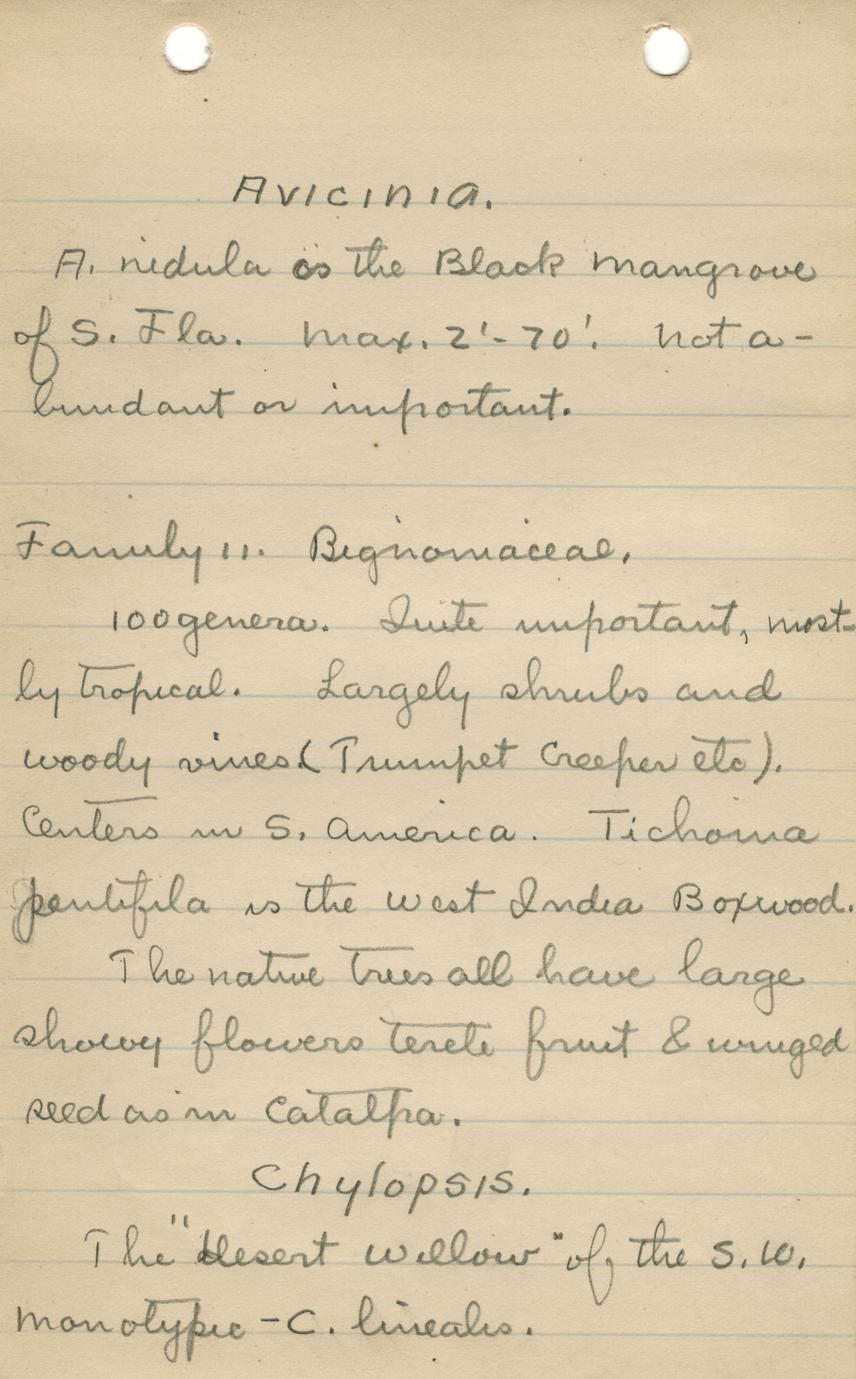 Avicinia.
A. nidula is the Black Mangrove
of S. Fla. Max. 2'-70'. Not a-
bundant or important.
Family 11. Bignoniaceae.
100 genera. Quite important, most-
ly tropical. Largely shrubs and
woody vines (Trumpet Creeper etc).
Centers in S. America. Tichoma
pentifila is the West India Boxwood.
The native trees all have large
showy flowers terete fruit & winged
seed as in Catalpa.
Chylopsis.
The "Desert Willow" of the S.W.
Monotypic - C. linealis.